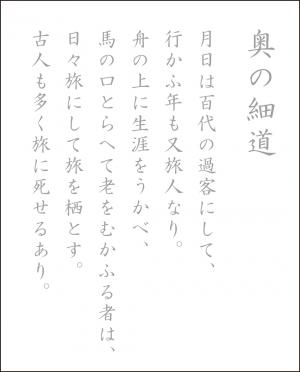 奥の細道
月日は百代の過客にして、
行かふ年も又旅人なり。
舟の上に生涯をうかべ、
馬の口とらへて老をむかふる者は、
日々旅にして旅を栖とす。
古人も多く旅に死せるあり。